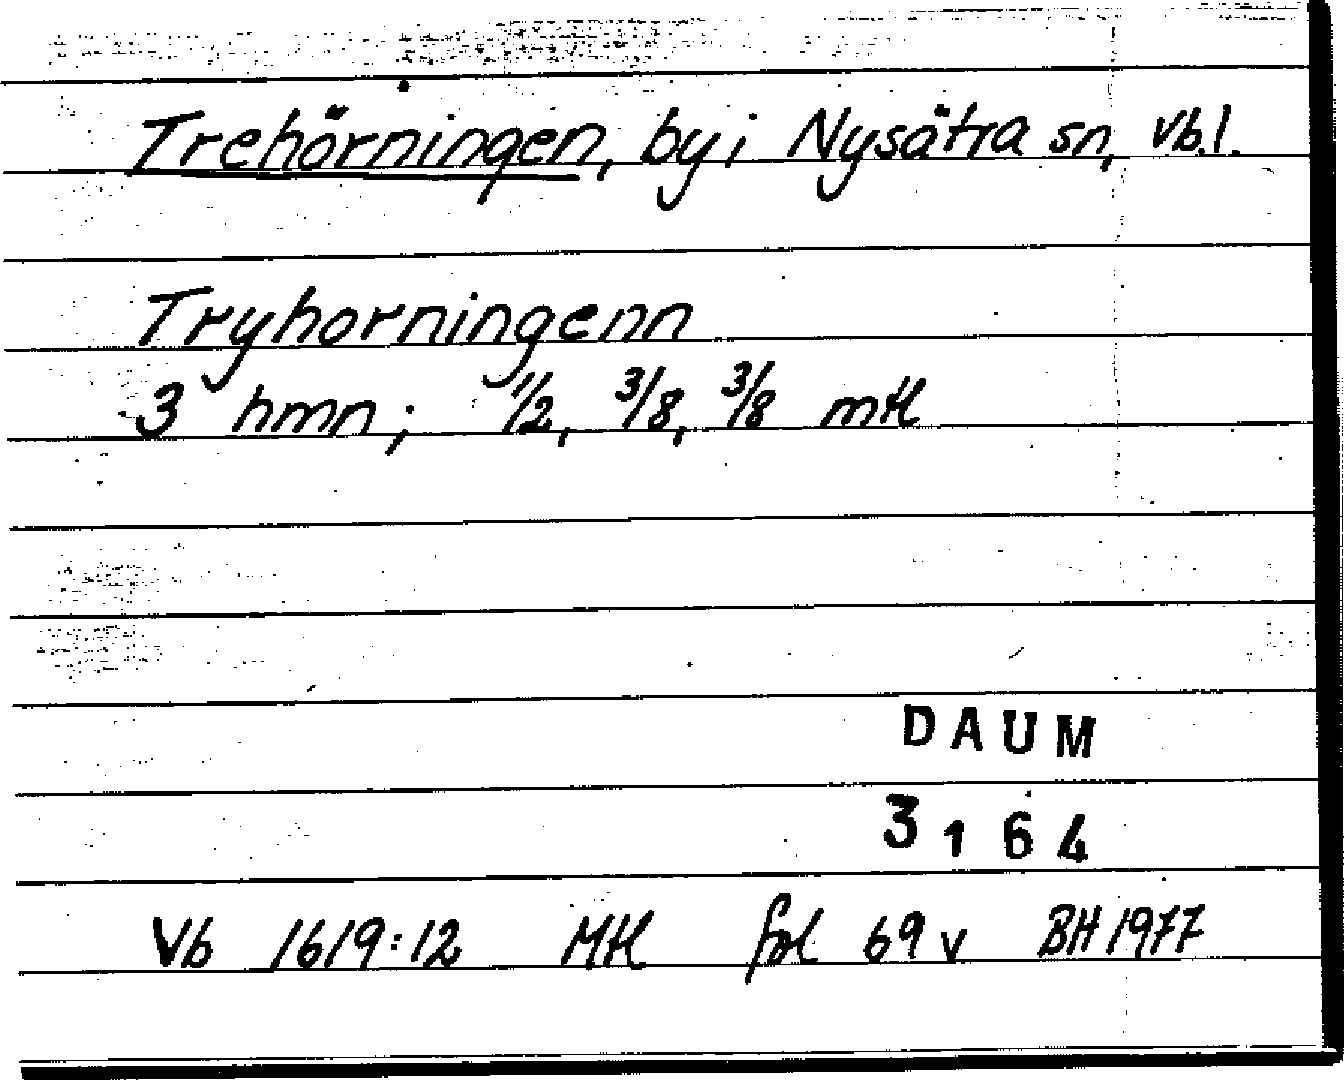 Trehörningen, by i Nysätra sn, Vb.l.
Tryhorningenn
3 hmn; 1/2, 3/8, 3/8 mtl
DAUM
3164
Vb 1619:12 Mtl fol 69 v BH 1977